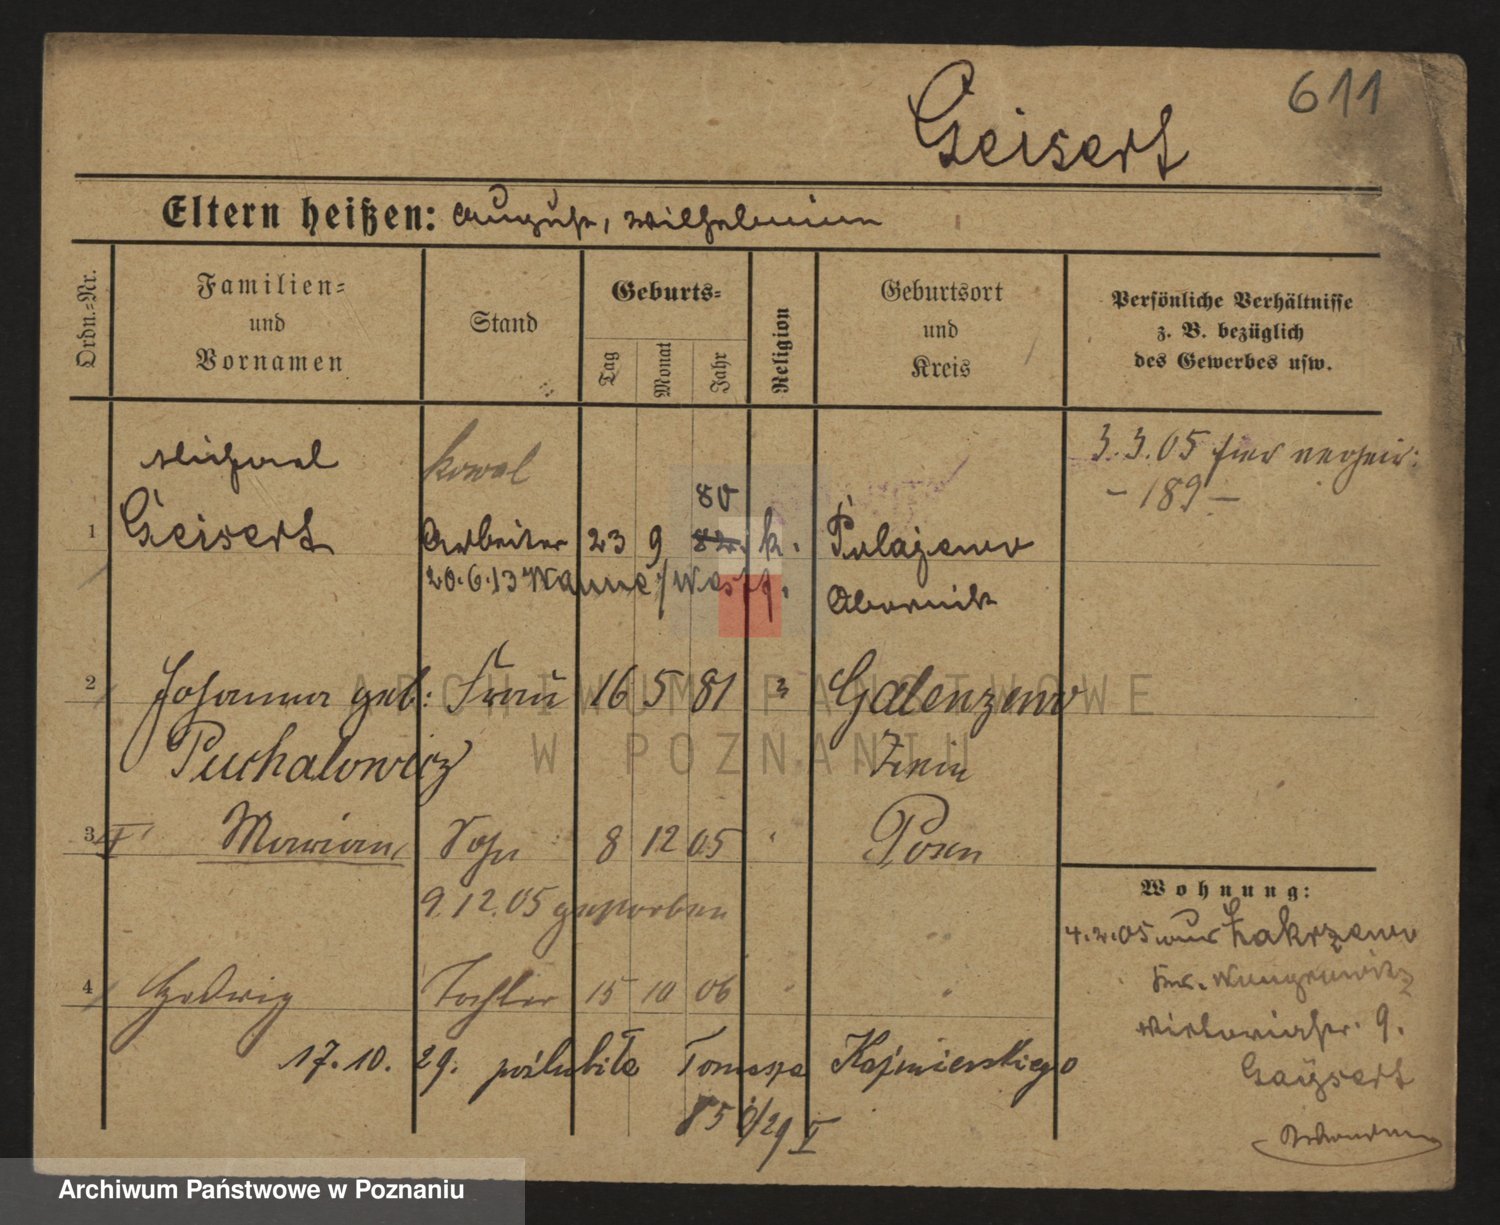 611
Geisert
Eltern heißen: August, Wilhelmine
Ordn.=Nr.
Familien=
und
Vornamen
Stand
Geburts=
Tag
Monat
Jahr
Religion
Geburtsort
und
Kreis
Persönliche Verhältnisse
z. B. bezüglich
des Gewerbes usw.
Michael kowal 3.3.05 hier verheir:
80 - 189 -
1 Geisert Arbeiter 23 9 82. k. Polajewo
20.6.13 Wanne/Westf. Obornik
2 Johanna geb: Frau 16 5 81 " Galenzewo
Puchalowicz Znin
3 I Marian Sohn 8 12 05 " Posen
9.12.05 gestorben
4 Hedwig Tochter 15 10 06 " "
17.10.29. poślubiła Tomasza Kaźmierskiego
Wohnung:
4.2.05 aus Zakrzewo
Krs. Wongrowitz
Victoriastr. 9.
Gaysert
ARCHIWUM PAŃSTWOWE
W POZNANIU
Archiwum Państwowe w Poznaniu